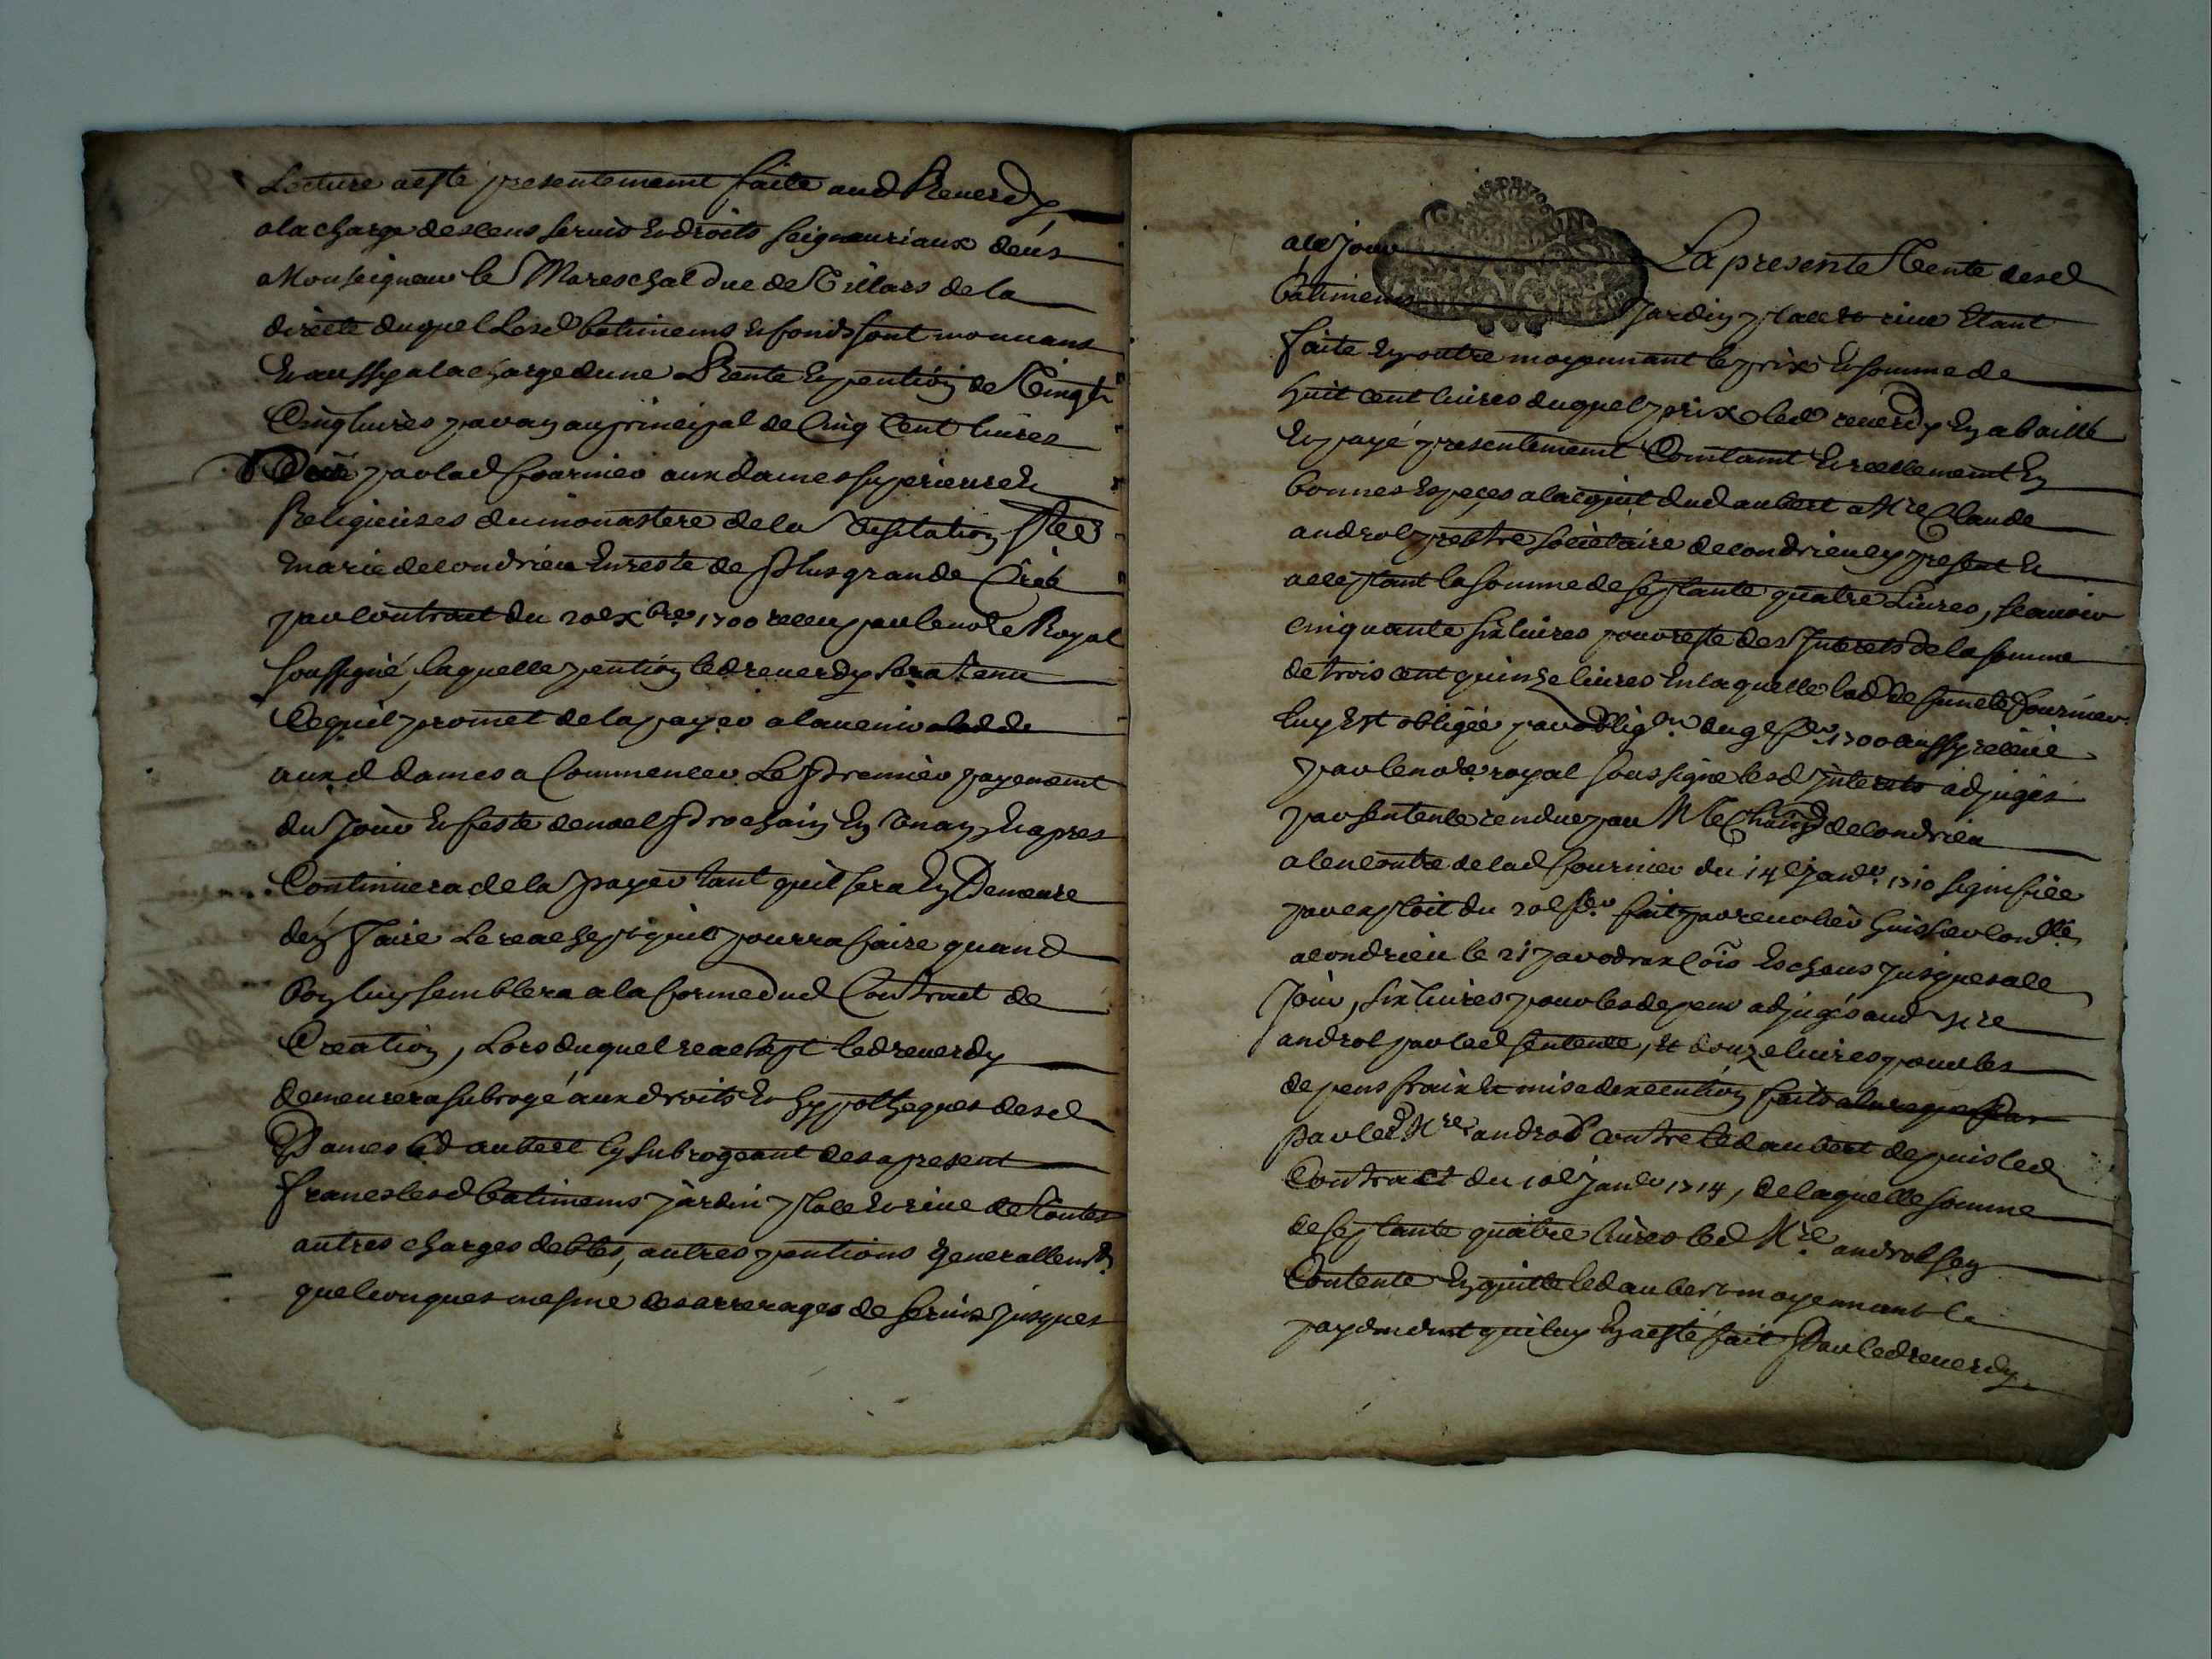 Lecture a esté presentement faite aud Reuerdy
a la charge des cens seruis et droits seigneuriaux deûs
a Monseigneur le Mareschal Duc de Villars de la
directe duquel lesd batimens et fonds sont mouuans
Et aussy a la charge dune Rente et pention de Vingt
Cinq liures par an au principal de Cinq Cent liures
Deüe par lad fournier aux dames superieure et
Religieuses du monastere de la Visitation Ste
marie de condrieu en reste de plus grande Créé
par contract du 20e xbre 1700 receu par le no.re Royal
soussigné, laquelle pention led reuerdy sera tenu
Ce quil promet de la payer a lauenir
auxd dames a Commencer Le premier payement
du Jour et feste de noel prochain En Vn an, Et apres
Continuera de la payer tant quil sera En Demeure
den faire Le reachept quil pourra faire quand
bon luy semblera a la forme dud Contract de
Création, Lors duquel reachept led reuerdy
demeurera subrogé aux droits et hyppotheques desd
Dames led aubert ly subrogeant des a present
francs lesd batimens jardin place et riue de toutes
autres charges debtes, autres pentions generallemt
quelconques mesme des arrerages de seruis jusques
a ce Jour La presente Vente desd
batimens Jardin place et riue Etant
faite En outre moyennant le prix et somme de
huit cent liures duquel prix led reuerdy En a baillé
Et payé presentement Comtant et reellement En
bonnes Espeçes a lacquit dud aubert a Mre Claude
androl prestre sociétaire de condrieu Cy present et
acceptant la somme de septante quatre Liures, scauoir
cinquante six liures pour reste des Interets de la somme
de trois cent quinze liures En laquelle lad defuncte fournier
luy Est obligée par oblig.on du 9e 1700 aussy receüe
par le no.re royal soussigné lesd Interets adjugés
par sentence rendue par Mr le de condrieu
a lencontre de lad fournier du 14e Janv.r 1710 signifiée
par exploit du 20e fait par reuolier huissier
a condrieu le 21 par Eschus jusques a ce
Jour, six liures pour les depens adjugés aud Mre
androl par lad sentence, et douze liures pour les
depens fraix et mise dexecution faits
par led Mre androl contre led aubert depuis led
Contract du 10e Janv.r 1714, de laquelle somme
de septante quatre liures led Mre androl sen
Contente En quitte led aubert moyennant le
payement qui luy En a esté fait Par led reuerdy